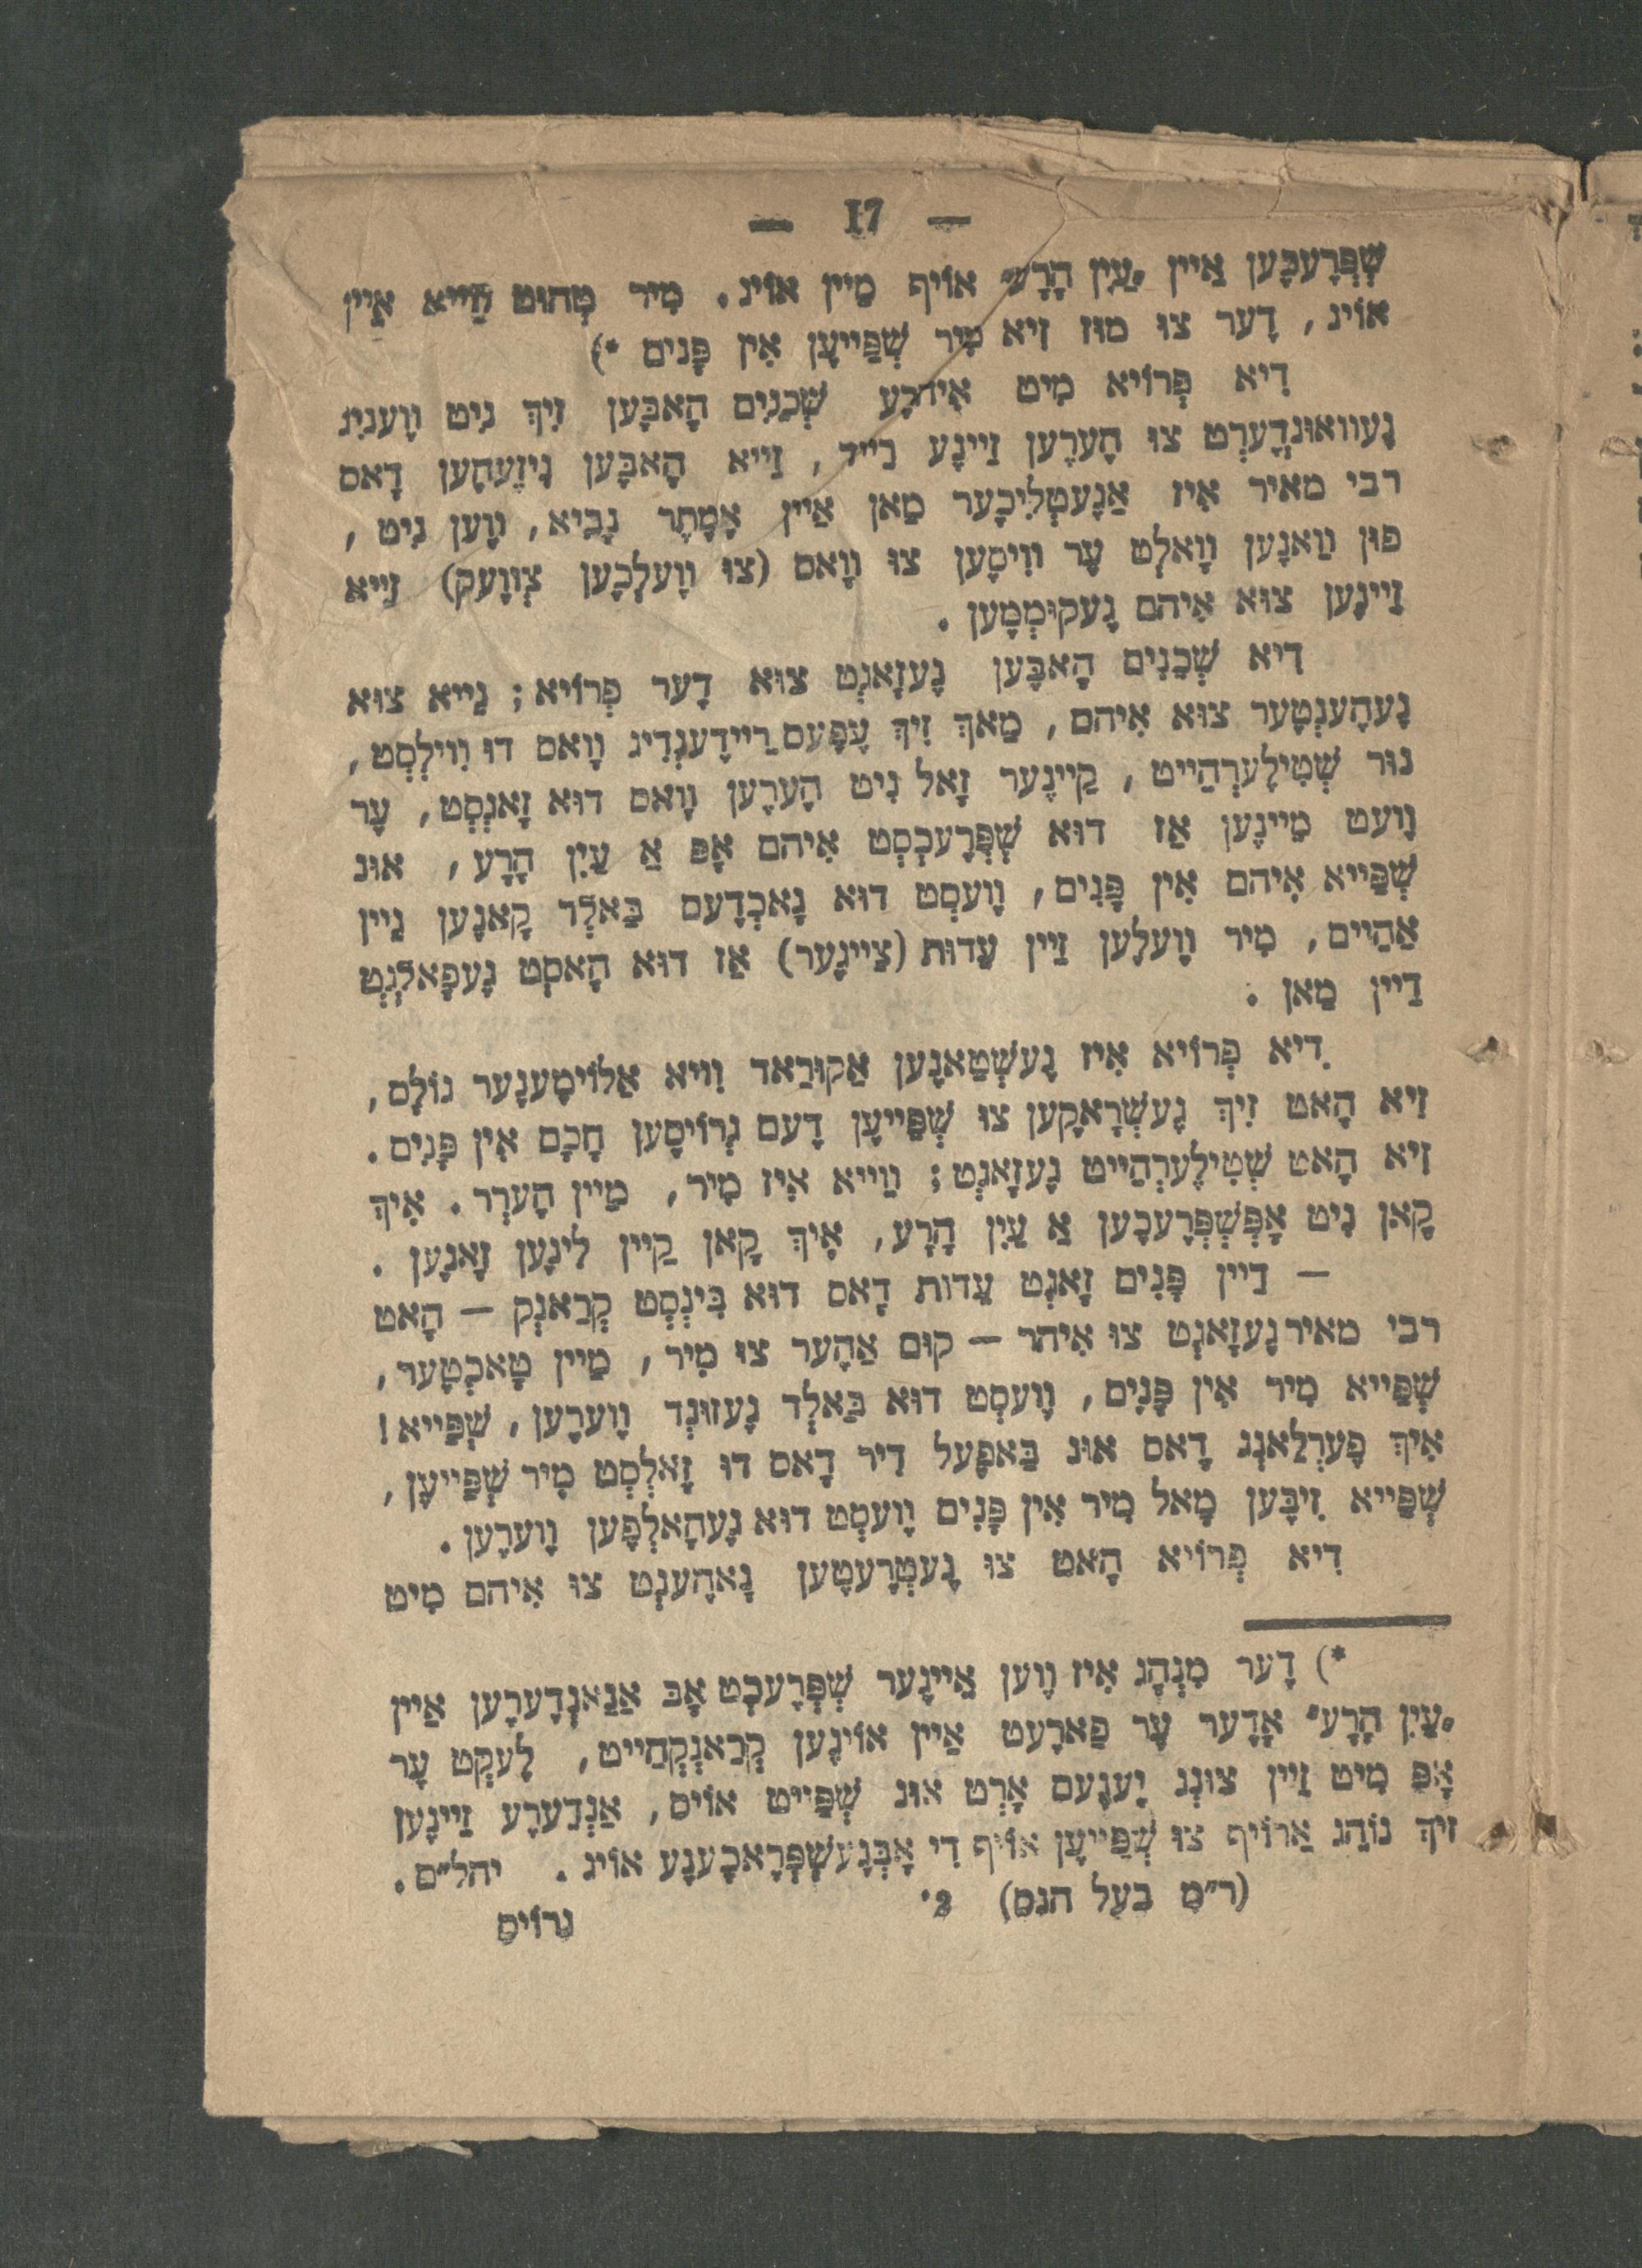 — 17 —
שְׁפְּרֶעכֶען אַיין „עַיִן הָרָע״ אוֹיף מַיין אוֹיג. מִיר טְהוּט וַוייא אַיין
אוֹיג, דֶער צוּ מוּז זִיא מִיר שְׁפַּייעֶן אִין פָּנִים *)
דִיא פְרוֹיא מִיט אִיהרֶע שְׁכֵנִים הָאבֶּען זִיךְ נִיט וֶוענִיג
גֶעוואוּנְדֶערְט צוּ הֶערֶען זַיינֶע רֵייד, זַייא הָאבֶּען גִיזֶעהֶען דָאס
רבי מאיר אִיז אַגֶעטְלִיכֶער מַאן אַיין אֱמֶתֶר נָבִיא, וֶוען נִיט,
פוּן וַואנֶען וָואלְט עֶר וִויסֶען צוּ וָואס (צוּ וֶועלְכֶען צְוֶועק) זַייא
זַיינֶען צוּא אִיהם גֶעקוּמֶען.
דִיא שְׁכֵנִים הָאבֶּען גֶעזָאגְט צוּא דֶער פְרוֹיא; גַייא צוּא
נֶעהֶענְטֶער צוּא אִיהם, מַאךְ זִיךְ עֶפֶּעס רֵיידֶענְדִיג וָואס דוּ וִוילְסְט,
נוּר שְׁטִילֶערְהַייט, קַיינֶער זָאל נִיט הֶערֶען וָואס דוּא זָאגְסְט, עֶר
וֶועט מַיינֶען אַז דוּא שְׁפְּרֶעכְסְט אִיהם אָפּ אַ עַיִן הָרָע, אוּנ
שְׁפַּייא אִיהם אִין פָּנִים, וֶועסְט דוּא נָאכְדֶעם בַּאלְד קָאנֶען גֵיין
אַהַיים, מִיר וֶועלֶען זַיין עֵדוּת (צַייגֶער) אַז דוּא הָאסְט גֶעפָאלְגְט
דַיין מַאן.
דִיא פְרוֹיא אִיז גֶעשְׁטַאנֶען אַקוּרַאד וִויא אַלוֹימֶענֶער גוֹלֶם,
זִיא הָאט זִיךְ גֶעשְׁרָאקֶען צוּ שְׁפַּייעֶן דֶעם גְרוֹיסֶען חָכָם אִין פָּנִים.
זִיא הָאט שְׁטִילֶערְהַייט גֶעזָאגְט; וַוייא אִיז מִיר, מַיין הֶערְר. אִיךְ
קָאן נִיט אָפְּשְׁפְּרֶעכֶען אַ עַיִן הָרָע, אִיךְ קָאן קַיין לִיגֶען זָאגֶען.
— דַיין פָּנִים זָאגְט עֵדות דָאס דוּא בִּינְסְט קְרַאנְק — הָאט
רבי מאיר גֶעזָאגְט צוּ אִיהר — קוּם אַהֶער צוּ מִיר, מַיין טָאכְטֶער,
שְׁפַּייא מִיר אִין פָּנִים, וֶועסְט דוּא בַּאלְד גֶעזוּנְד וֶוערֶען, שְׁפַּייא!
אִיךְ פֶערְלַאנְג דָאס אוּנ בַּאפֶעל דִיר דָאס דוּ זָאלְסְט מִיר שְׁפַּייעֶן,
שְׁפַּייא זִיבֶּען מָאל מִיר אִין פָּנִים וֶועסְט דוּא גֶעהָאלְפֶען וֶוערֶען.
דִיא פְרוֹיא הָאט צוּ גֶעטְרֶעטֶען נָאהֶענְט צוּ אִיהם מִיט
*) דֶער מִנְהָג אִיז וֶוען אַיינֶער שְׁפְּרֶעכְט אָבּ אַנַאנְדֶערֶען אַיין
„עַיִן הָרָע״ אָדֶער עֶר פַארֶעט אַיין אוֹיגֶען קְרַאנְקְהַייט, לֶעקְט עֶר
אָפּ מִיט זַיין צוּנְג יֶענֶעם אָרְט אוּנ שְׁפַּייט אוֹיס, אַנְדֶערֶע זַיינֶען
זִיךְ נוֹהֵג אַרוֹיף צוּ שְׁפַּייעֶן אוֹיף דִי אָבְּגֶעשְׁפְּרָאכֶענֶע אוֹיג. יהל״ם.
(ר״מ בעל הנס) 2*
גרוֹיס